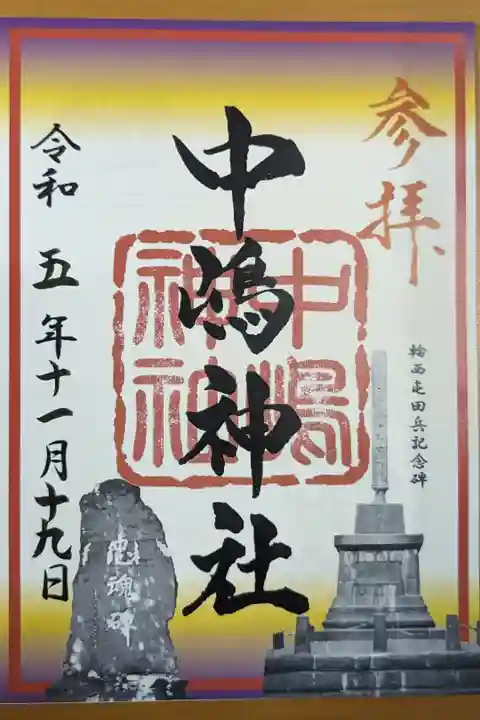 参拝
輪西屯田兵記念碑
中嶋神社
中嶋神社
忠魂碑
令和 五 年十一月十九日